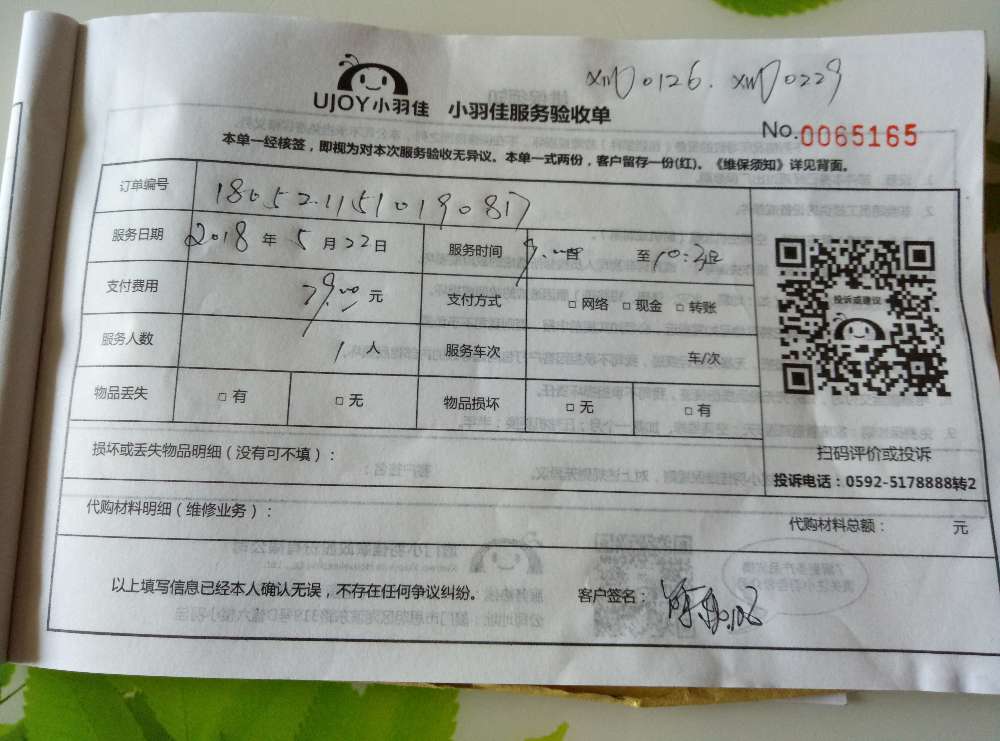 XMD0126. XMD0229
UJOY小羽佳 小羽佳服务验收单
No.0065165
本单一经核签，即视为对本次服务验收无异议。本单一式两份，客户留存一份(红)。《维保须知》详见背面。
订单编号 1805211510190817
服务日期 2018 年 5 月 22 日 服务时间 9:00 至 10:30
支付费用 79.00 元 支付方式 □ 网络 □ 现金 □ 转账
投诉或建议
服务人数 1 人 服务车次 车/次
物品丢失 □ 有 □ 无 物品损坏 □ 无 □ 有
损坏或丢失物品明细（没有可不填）：
扫码评价或投诉
投诉电话：0592-5178888转2
代购材料明细（维修业务）： 代购材料总额： 元
以上填写信息已经本人确认无误，不存在任何争议纠纷。 客户签名：